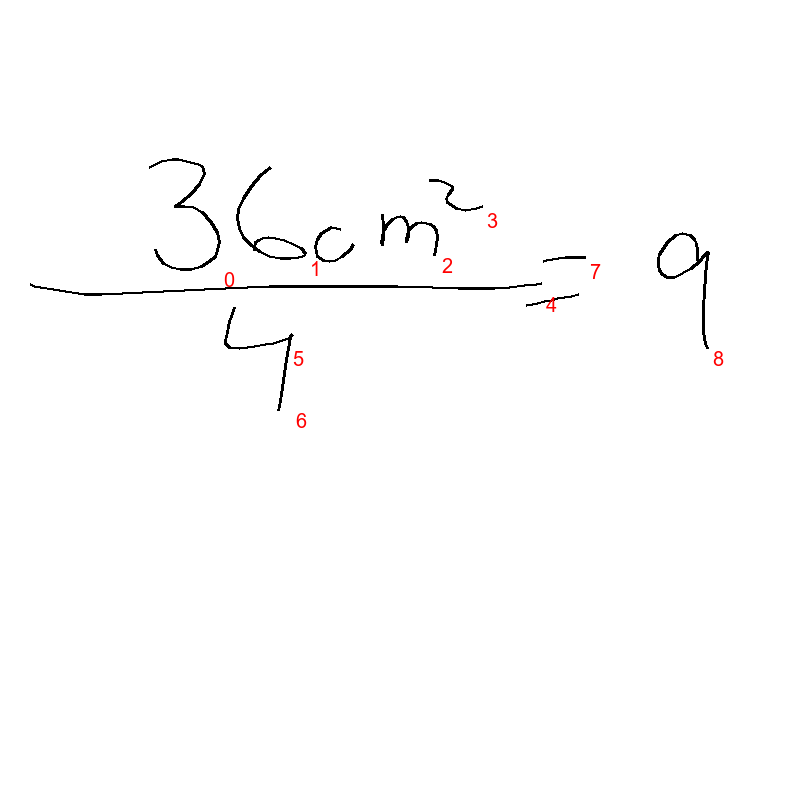 36cm²
4
= 9
0 1 2 3 4 5 6 7 8